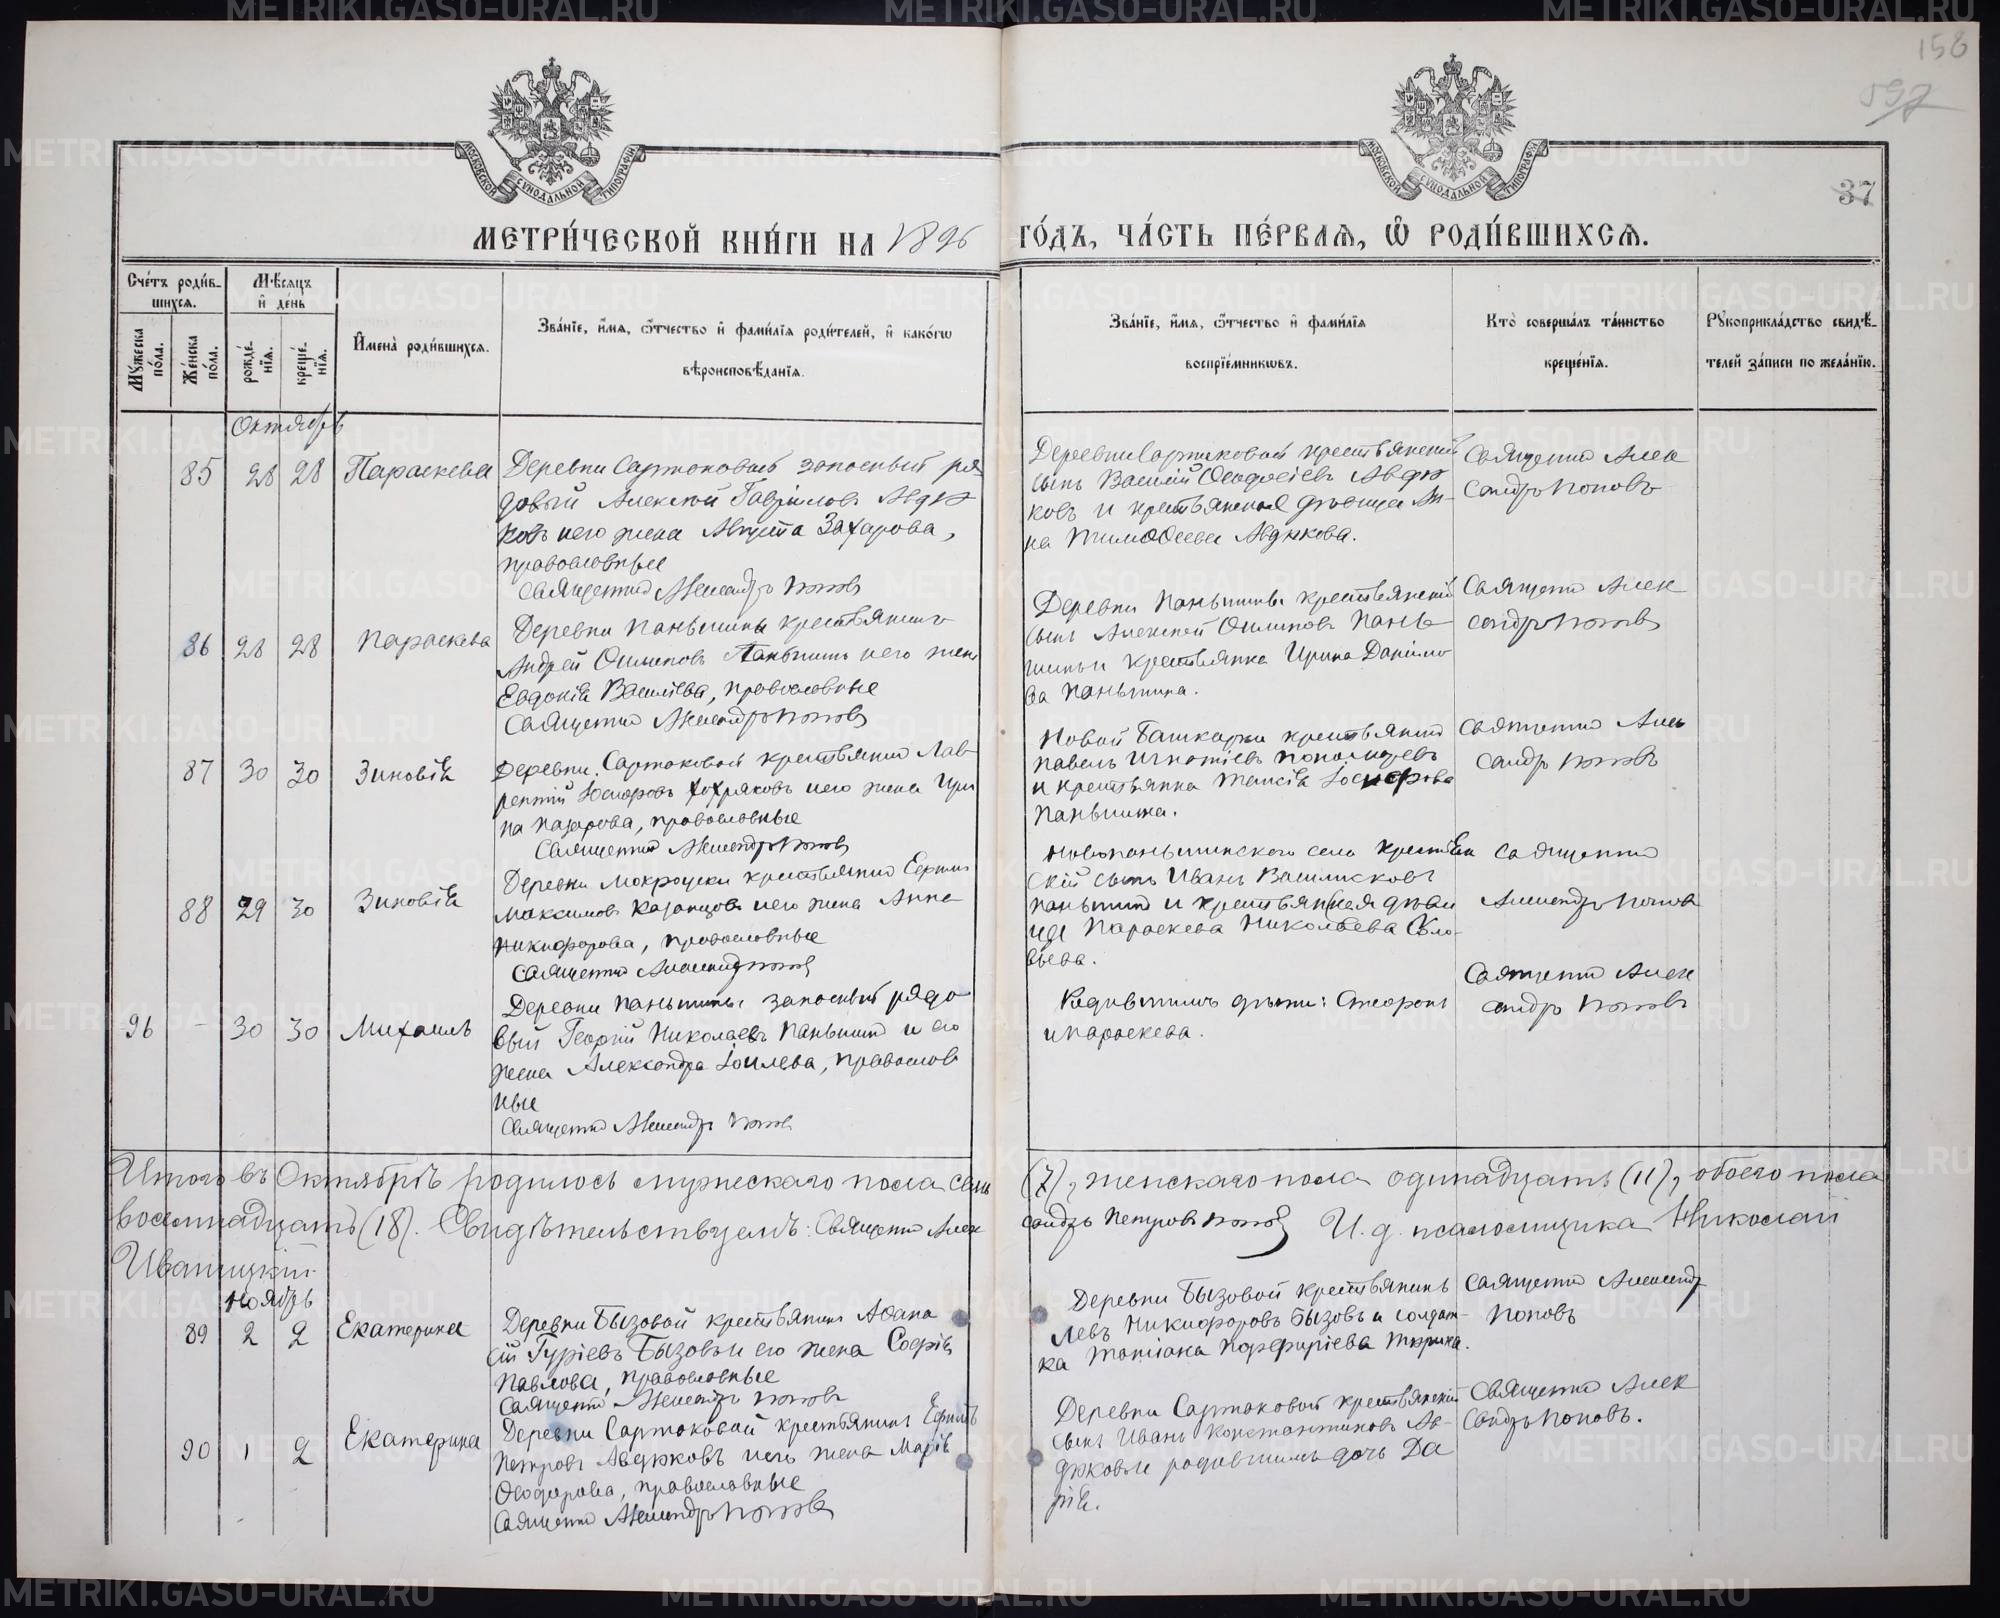 158
597
37
МОСКОВСКОЙ СУНОДАЛЬНОЙ ТИПОГРАФІИ
МОСКОВСКОЙ СУНОДАЛЬНОЙ ТИПОГРАФІИ
МЕТРИ́ЧЕСКОЙ КНИ́ГИ НА 1896 ГО́ДЪ, ЧА́СТЬ ПЕ́РВАЯ, Ѽ РОДИ́ВШИХСЯ.
Сче́тъ роди́в-
шихся.
Мѣ́сяцъ
и҆ де́нь
Му́жеска по́ла.
Же́нска по́ла.
рожде́-
нїѧ.
креще́-
нїѧ.
И҆мена̀ роди́вшихся.
Зва́нїе, и҆́мя, ѻ҆́тчество и҆ фами́лїя роди́телей, и҆ како́гѡ
вѣроисповѣ́данїя.
Зва́нїе, и҆́мя, ѻ҆́тчество и҆ фами́лїя
воспрїе́мникѡвъ.
Кто̀ соверша́лъ та́инство
креще́нїя.
Рꙋкоприкла́дство свидѣ́-
телей за́писи по жела́нїю.
Октябрь
85 28 28 Параскева
Деревни Сартаковой запасный ря-
довой Алексѣй Гавріиловъ Авдю-
ковъ и его жена Августа Захарова,
православные
Священникъ Александръ Поповъ
Деревни Сартаковой крестьянскій
сынъ Василій Ѳеодосіевъ Авдю-
ковъ и крестьянская дѣвица Ан-
на Тимоѳеева Авдюкова.
Священникъ Алек
сандръ Поповъ
86 28 28 Параскева
Деревни Паньшины крестьянинъ
Андрей Осиповъ Паньшинъ и его жена
Евдокія Васильева, православные
Священникъ Александръ Поповъ
Деревни Паньшины крестьянскій
сынъ Алексѣй Осиповъ Пань-
шинъ и крестьянка Ирина Данило
ва Паньшина.
Священникъ Алек
сандръ Поповъ
87 30 30 Зиновія
Деревни Сартаковой крестьянинъ Лав-
рентій Іосифовъ Хохряковъ и его жена Ири
на Назарова, православные
Священникъ Александръ Поповъ
Новой Башкарки крестьянинъ
Павелъ Игнатіевъ Пономаревъ
и крестьянка Таисія Іосифова
Паньшина.
Священникъ Алек
сандръ Поповъ
88 29 30 Зиновія
Деревни Мокроуски крестьянинъ
Максимовъ Казанцовъ и его жена Анна
Никифорова, православные
Священникъ Александръ Поповъ
Новопаньшинского села крестьян
скій сынъ Иванъ Василисковъ
Паньшинъ и крестьянская дѣви
ца Параскева Николаева Соло-
вьева.
Священникъ
Александръ Поповъ
96 - 30 30 Михаилъ
Деревни Паньшины запасный рядо
вый Георгій Николаевъ Паньшинъ и его
жена Александра Іоилева, православ
ные
Священникъ Александръ Поповъ
Родившихъ дѣти:
и Параскева.
Священникъ Алек
сандръ Поповъ
Итого въ Октябрѣ родилось мужескаго пола семь (7), женскаго пола одинадцать (11), обоего пола
восемнадцать (18). Свидѣтельствуемъ: Священникъ Алек
сандръ Петровъ Поповъ И. д. псаломщика Николай
Иваницкій.
Ноябрь
89 2 2 Екатерина
Деревни Бызовой крестьянинъ Аѳана
сій Гуріевъ Бызовъ и его жена Софія
Павлова, православные
Священникъ Александръ Поповъ
Деревни Бызовой крестьянинъ
Левъ Никифоровъ Бызовъ и солдат-
ка Татіана Порфиріева Тюрина.
Священникъ Александръ
Поповъ
90 1 2 Екатерина
Деревни Сартаковой крестьянинъ Ефимъ
Петровъ Авдюковъ и его жена Марія
Ѳеодорова, православные
Священникъ Александръ Поповъ
Деревни Сартаковой крестьянскій
сынъ Иванъ Константиновъ Ав-
дюковъ и родившихъ дочь Да
рія.
Священникъ Алек
сандръ Поповъ.
METRIKI.GASO-URAL.RU